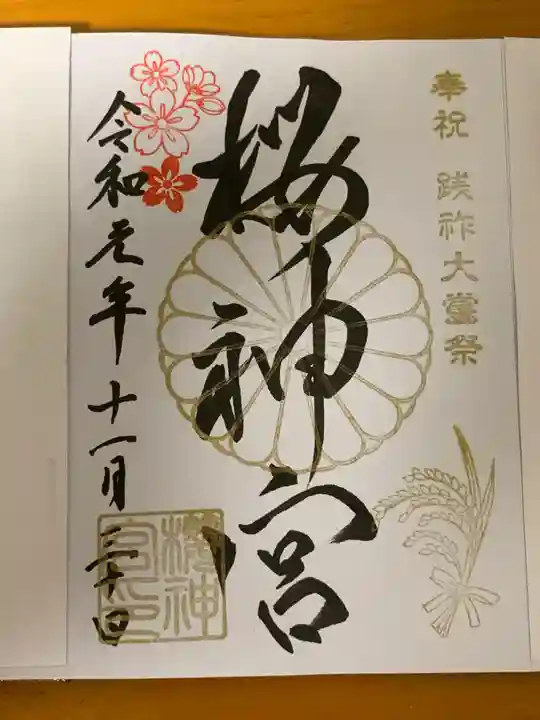 奉祝 践祚大嘗祭
桜神宮
令和元年十一月三十日
櫻神宮印